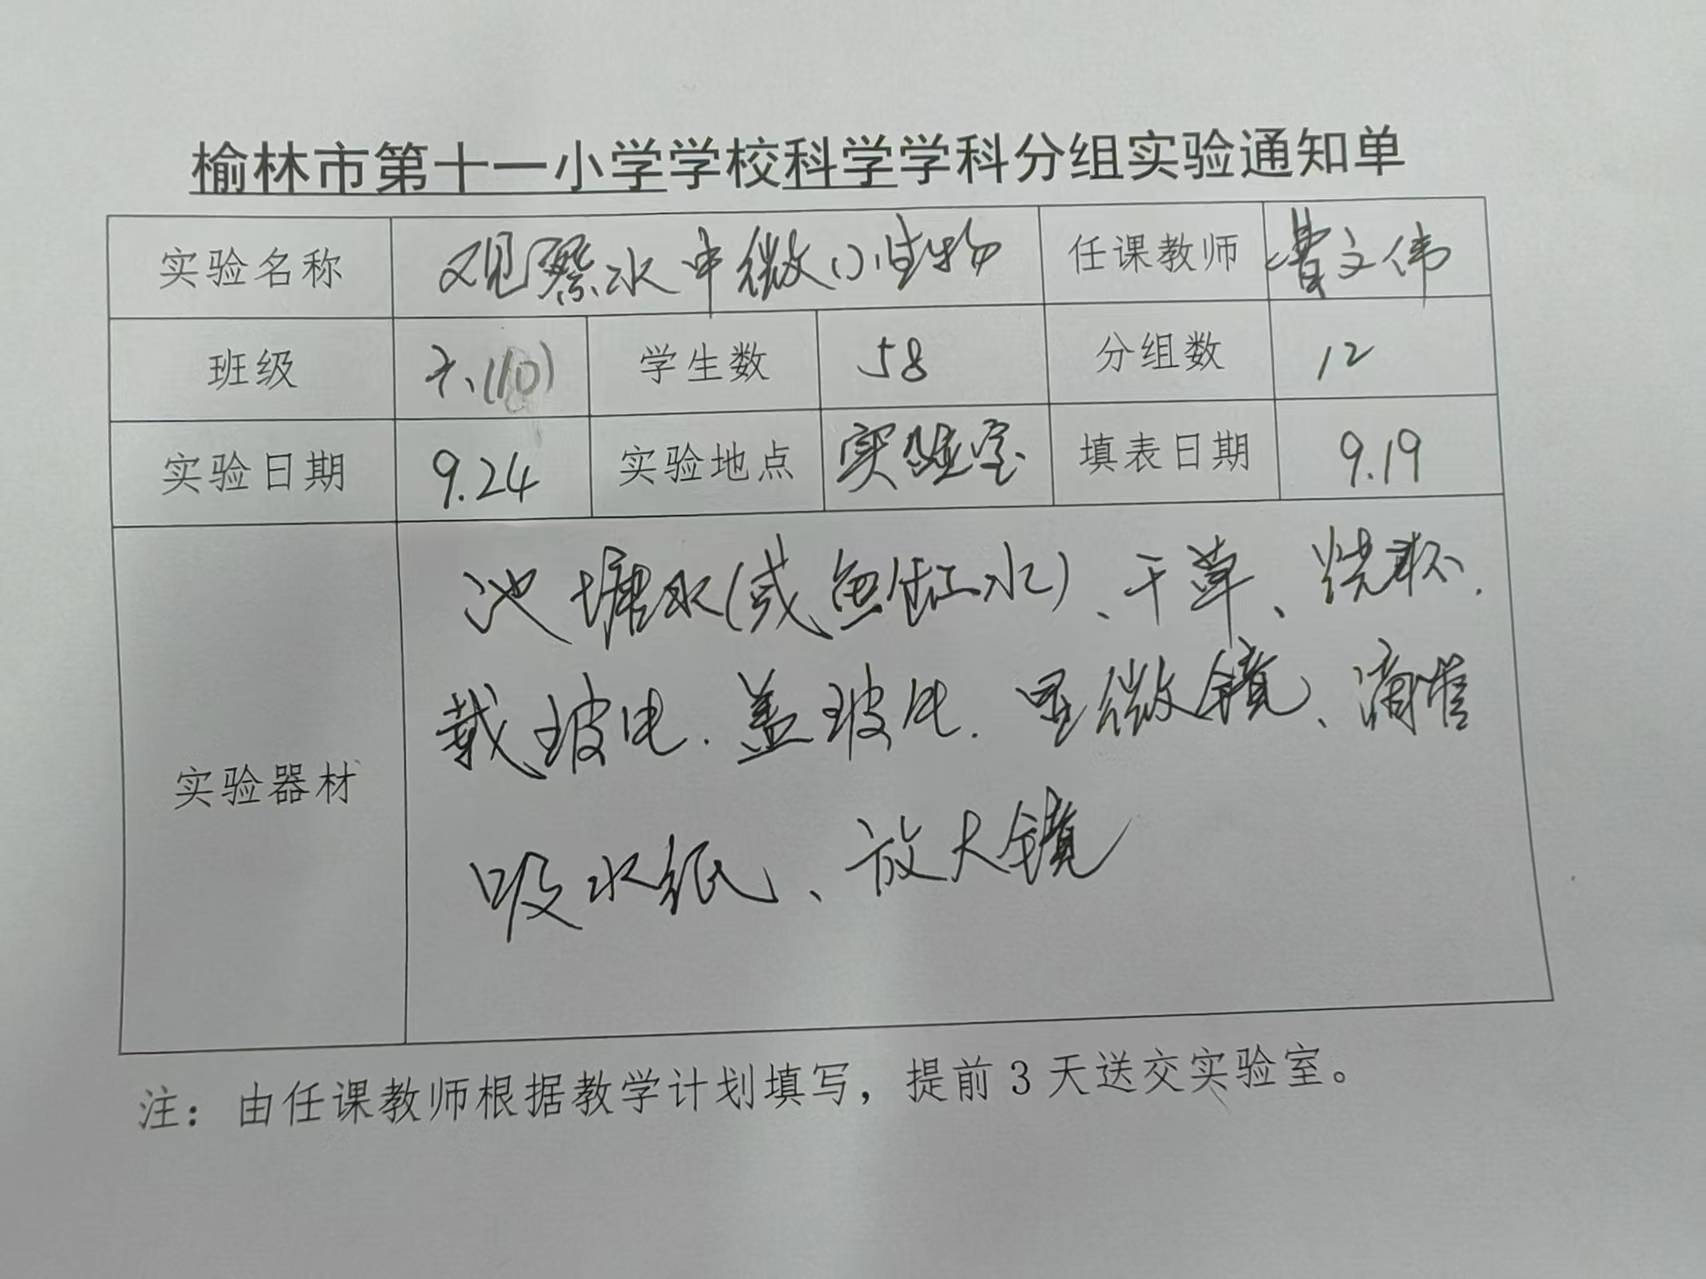 榆林市第十一小学学校科学学科分组实验通知单
实验名称 观察水中微小生物 任课教师 曹文伟
班级 六(10) 学生数 58 分组数 12
实验日期 9.24 实验地点 实验室 填表日期 9.19
实验器材
池塘水(或鱼缸水)、干草、烧杯、
载玻片、盖玻片、显微镜、滴管
吸水纸、放大镜
注：由任课教师根据教学计划填写，提前3天送交实验室。